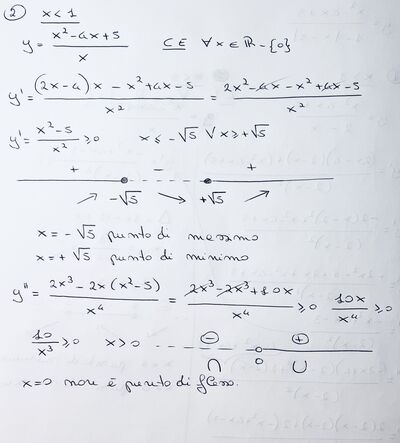 ② x < 1
y = (x² - 4x + 5)/x   C.E ∀x ∈ ℝ - {0}
y' = ((2x - 4)x - x² + 4x - 5)/x² = (2x² - 4x - x² + 4x - 5)/x²
y' = (x² - 5)/x² ≥ 0   x ≤ -√5 ∨ x ≥ +√5
+ − +
↗ -√5 ↘ +√5 ↗
x = -√5 punto di massimo
x = +√5 punto di minimo
y'' = (2x³ - 2x(x² - 5))/x⁴ = (2x³ - 2x³ + 10x)/x⁴ ≥ 0   10x/x⁴ ≥ 0
10/x³ ≥ 0   x > 0   ⊖ ⊕
∩ ∪
x = 0 non è punto di flesso.